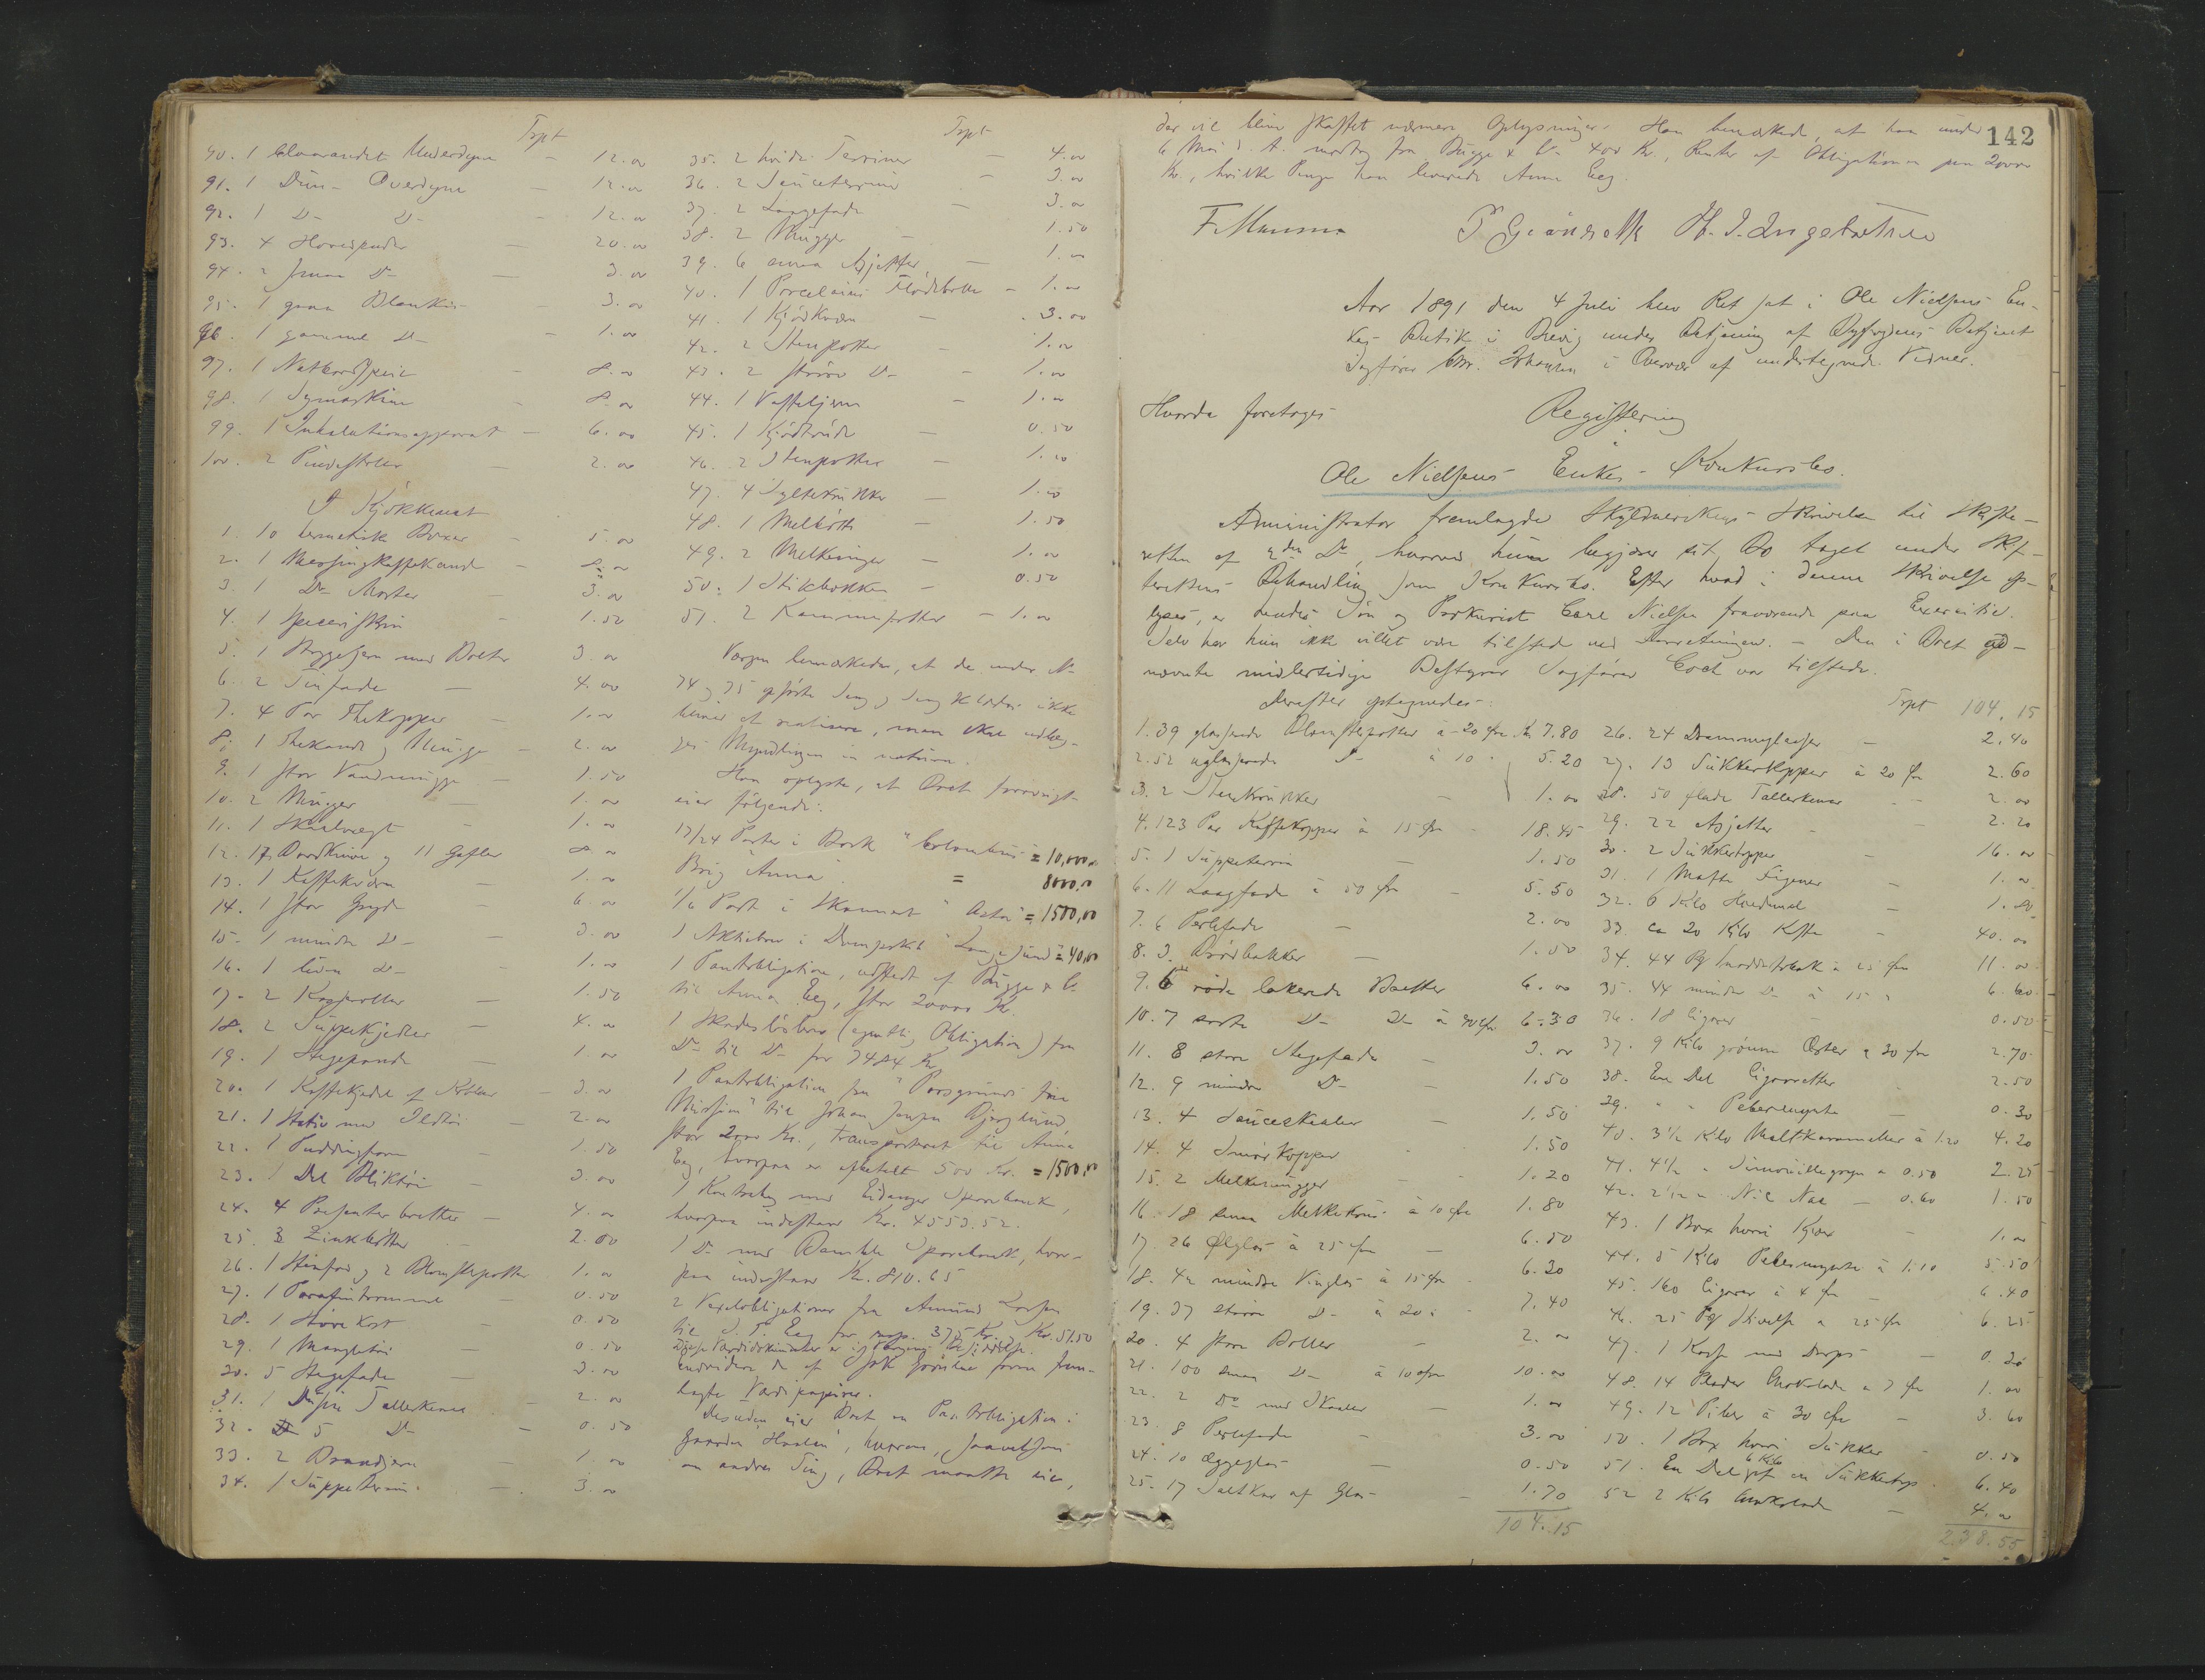 Tspt
90. 1 blaarandet Underdyne - 12.00
91. 1 Dun- Overdyne - 12.00
92. 1 Do Do - 12.00
93. 4 Hovedpuder - 20.00
94. 2 smaa Do - 3.00
95. 1 graa Blanket - 3.00
96. 1 gammel Do - 1.00
97. 1 Natbordspeil - 8.00
98. 1 Symaskine - 8.00
99. 1 Inhalationsapparat - 6.00
100. 2 Pindestoler - 2.00
I Kjøkkenet
1. 10 hermetisk Boxer - 5.00
2. 1 Messingkaffekande - 8.00
3. 1 Do Morter - 3.00
4. 1 Speceriskrin - 1.50
5. 1 Strygejern med Bolter 3.00
6. 2 Tinfade - 4.00
7. 4 Par Thekopper - 1.00
8. 1 Thekande og Mugge - 2.00
9. 1 stor Vandmugge - 1.50
10. 2 Mugger - 1.00
11. 1 Skaalvægt - 1.00
12. 17 Bordknive og 11 Gafler 8.00
13. 1 Kaffekværn - 1.00
14. 1 stor Gryde - 6.00
15. 1 mindre Do - 3.00
16. 1 liden Do - 1.00
17. 2 Kasseroller - 1.50
18. 2 Suppekjedler - 4.00
19. 1 Stegepande - 1.00
20. 1 Kaffekjedel af Kobber - 3.00
21. 1 Stativ med Ildtøi - 2.00
22. 1 Puddingform - 1.50
23. 1 Del Bliktøi - 3.00
24. 4 Presenterbretter - 4.00
25. 3 Zinkbøtter - 2.00
26. 1 Stenfad og 2 Blomsterpotter 1.00
27. 1 Parafintromme - 0.50
28. 1 Støvekost 0.50
29. 1 Mangletøi - 0.50
30. 5 Stegefade - 3.00
31. 1 Dusin Tallerkener - 2.00
32. 5 Do - 0.50
33. 2 Brandjern - 1.00
34. 1 Suppeterrin - 3.00
Tspt
35. 2 hvide Terriner - 4.00
36. 2 Sauceterriner - 3.00
37. 2 Laagefade - 3.00
38. 2 Mugger - 1.50
39. 6 smaa Asjetter - 1.00
40. 1 Porcelains Flødebolle - 1.00
41. 1 Kjødkværn - 3.00
42. 2 Stenpotter - 1.00
43. 2 større Do - 1.00
44. 1 Vaffeljern - 1.00
45. 1 Kjødbræt - 0.50
46. 2 Stenpotter - 1.00
47. 4 Syltekrukker - 1.00
48. 1 Melbøtte - 1.50
49. 2 Melkeringer - 1.00
50. 1 Stikbækken - 0.50
51. 2 Kammerpotter - 1.00
Værgen bemærkede, at de under No
74 og 75 opførte Seng og Sengklæder ikke
bliver at realisere, men skal udlæg-
ges Myndlingen in natura.
Han oplyste, at Boet forøvrigt
eier følgende:
13/24 Parter i Bark "Columbus" = 10,000.00
Brig "Anna" = 8000,00
1/6 Part i Skonnert "Astræ" = 1500,00
1 Aktiebrev i Dampskib "Langesund" = 40,00
1 Pantobligation, udstedt af Bugge & Co
til Anna Eeg, stor 20000 Kr.
1 Skadesløsbrev (egentlig Obligation) fra
Do til Do for 7484 Kr.
1 Pantobligation fra "Porsgrunds fri
Mission" til Johan Jensen Bjerglund,
stor 2000 Kr., transporteret til Anna
Eeg, hvorpaa er afbetalt 500 Kr. = 1500,00
1 Kontrabog med Eidanger Sparebank,
hvorpaa indestaar Kr. 4553.52.
1 Do med Bamble Sparebank, hvor-
paa indestaar Kr. 810.65
2 Vexelobligationer fra Amund Larsen
til J. T. Eeg for resp. 375 Kr. og Kr. 51.50
Disse Værdidokumenter er i Værgens Besiddelse.
Endvidere de af foran frem-
lagte Værdipapirer.
Desuden eier Boet en Pantobligation i
Gaarden "Haalen", hvorom, saavelsom
om andre Ting, Boet maatte eie,
142
der vil blive skaffet nærmere Oplysninger. Han bemærkede, at han under
6 Mai d. A. modtog fra Bugge & Co 400 Kr., Renter af Obligationen paa 20000
Kr., hvilke Penge han leverede Anna Eeg.
F. Mamma P Grönseth H. J. Ingebretsen
Aar 1891 den 4 Juli blev Ret sat i Ole Nielsens En-
kes Butik i Brevig under Betjening af Byfogdens Betjent
Sagfører Chr. Johansen i Overvær af undertegnede Vidner.
Hvorda foretoges
Registrering
i
Ole Nielsens Enkes Konkursbo.
Administrator fremlagde Skyldnerskens Skrivelse til Skifte-
retten af 2den Ds, hvorved hun begjærer sit Bo taget under Skif-
terettens Behandling som Konkursbo. Efter hvad i denne Skrivelse op-
lyses, er hendes Søn og Prokurist Carl Nielsen fraværende paa Exercitie.
Selv har hun ikke villet være tilstede ved Forretningen. - Den i Boet op-
nævnte midlertidige Bestyrer Sagfører Coch var tilstede.
Derefter optegnedes:
1. 39 glasserede Blomsterpotter à 20 Øre Kr 7.80
2. 52 uglasserede Do à 10 " 5.20
3. 2 Stenkrukker - 1.00
4. 123 Par Kaffekopper à 15 Øre 18.45
5. 1 Suppeterrin - 1.50
6. 11 Laagfade à 50 Øre - 5.50
7. 6 Perlefade - 2.00
8. 3 Brødbakker - 1.50
9. 6 røde lakerede Bretter 6.00
10. 7 sorte Do Do à 90 Øre 6.30
11. 8 store Stegefade - 3.00
12. 9 mindre Do - 1.50
13. 4 Sauceskaaler - 1.50
14. 4 Smørkopper - 1.50
15. 2 Melkemugger - 1.20
16. 18 smaa Melkekrus à 10 Øre 1.80
17. 26 Ølglas à 25 Øre - 6.50
18. 42 mindre Vinglas à 15 Øre - 6.30
19. 37 større Do à 20 " - 7.40
20. 4 store Boller - 2.00
21. 100 smaa Do à 10 Øre 10.00
22. 2 Do med Skaaler - 1.00
23. 8 Perlefade - 3.00
24. 10 Æggeglas - 0.50
25. 17 Saltkar af Glas - 1.70
104.15
Tspt 104,15
26. 24 Drammeglasser - 2.40
27. 13 Sukkerkopper à 20 Øre 2.60
28. 50 flade Tallerkener - 2.00
29. 22 Asjetter - 2.20
30. 2 Sukkertopper - 16.00
31. 1 Matte Figener - 1.00
32. 6 Kilo Hvedemel - 1.20
33. ca 20 Kilo Kaffe - 40.00
34. 44 Pk à 25 Øre 11.00
35. 44 mindre Do à 15 " 6.60
36. 18 Cigarer - 0.50
37. 9 Kilo grønne Erter à 30 Øre 2.70
38. En Del Cigaretter - 2.50
39. " " Pebermynte - 0.30
40. 3 1/2 Kilo Maltkarameller à 1.20 4.20
41. 4 1/2 " Semouillegryn à 0.50 2.25
42. 2 1/2 " Nic Nac - 0.60 1.50
43. 1 Box hvori Kjæx - 1.00
44. 5 Kilo Pebermynte à 1.10 5.50
45. 160 Cigarer à 4 Øre - 6.40
46. 25 Pk Stivelse à 25 Øre 6.25
47. 1 Kasse med Drops - 0.20
48. 14 Plader Chokolade à 7 Øre 1.00
49. 12 Piber à 30 Øre - 3.60
50. 1 Box hvori Sukker - 0.50
51. En Del 6 Kilo af en Sukkertop 6.40
52 2 Kilo Chokolade - 4.00
238.55